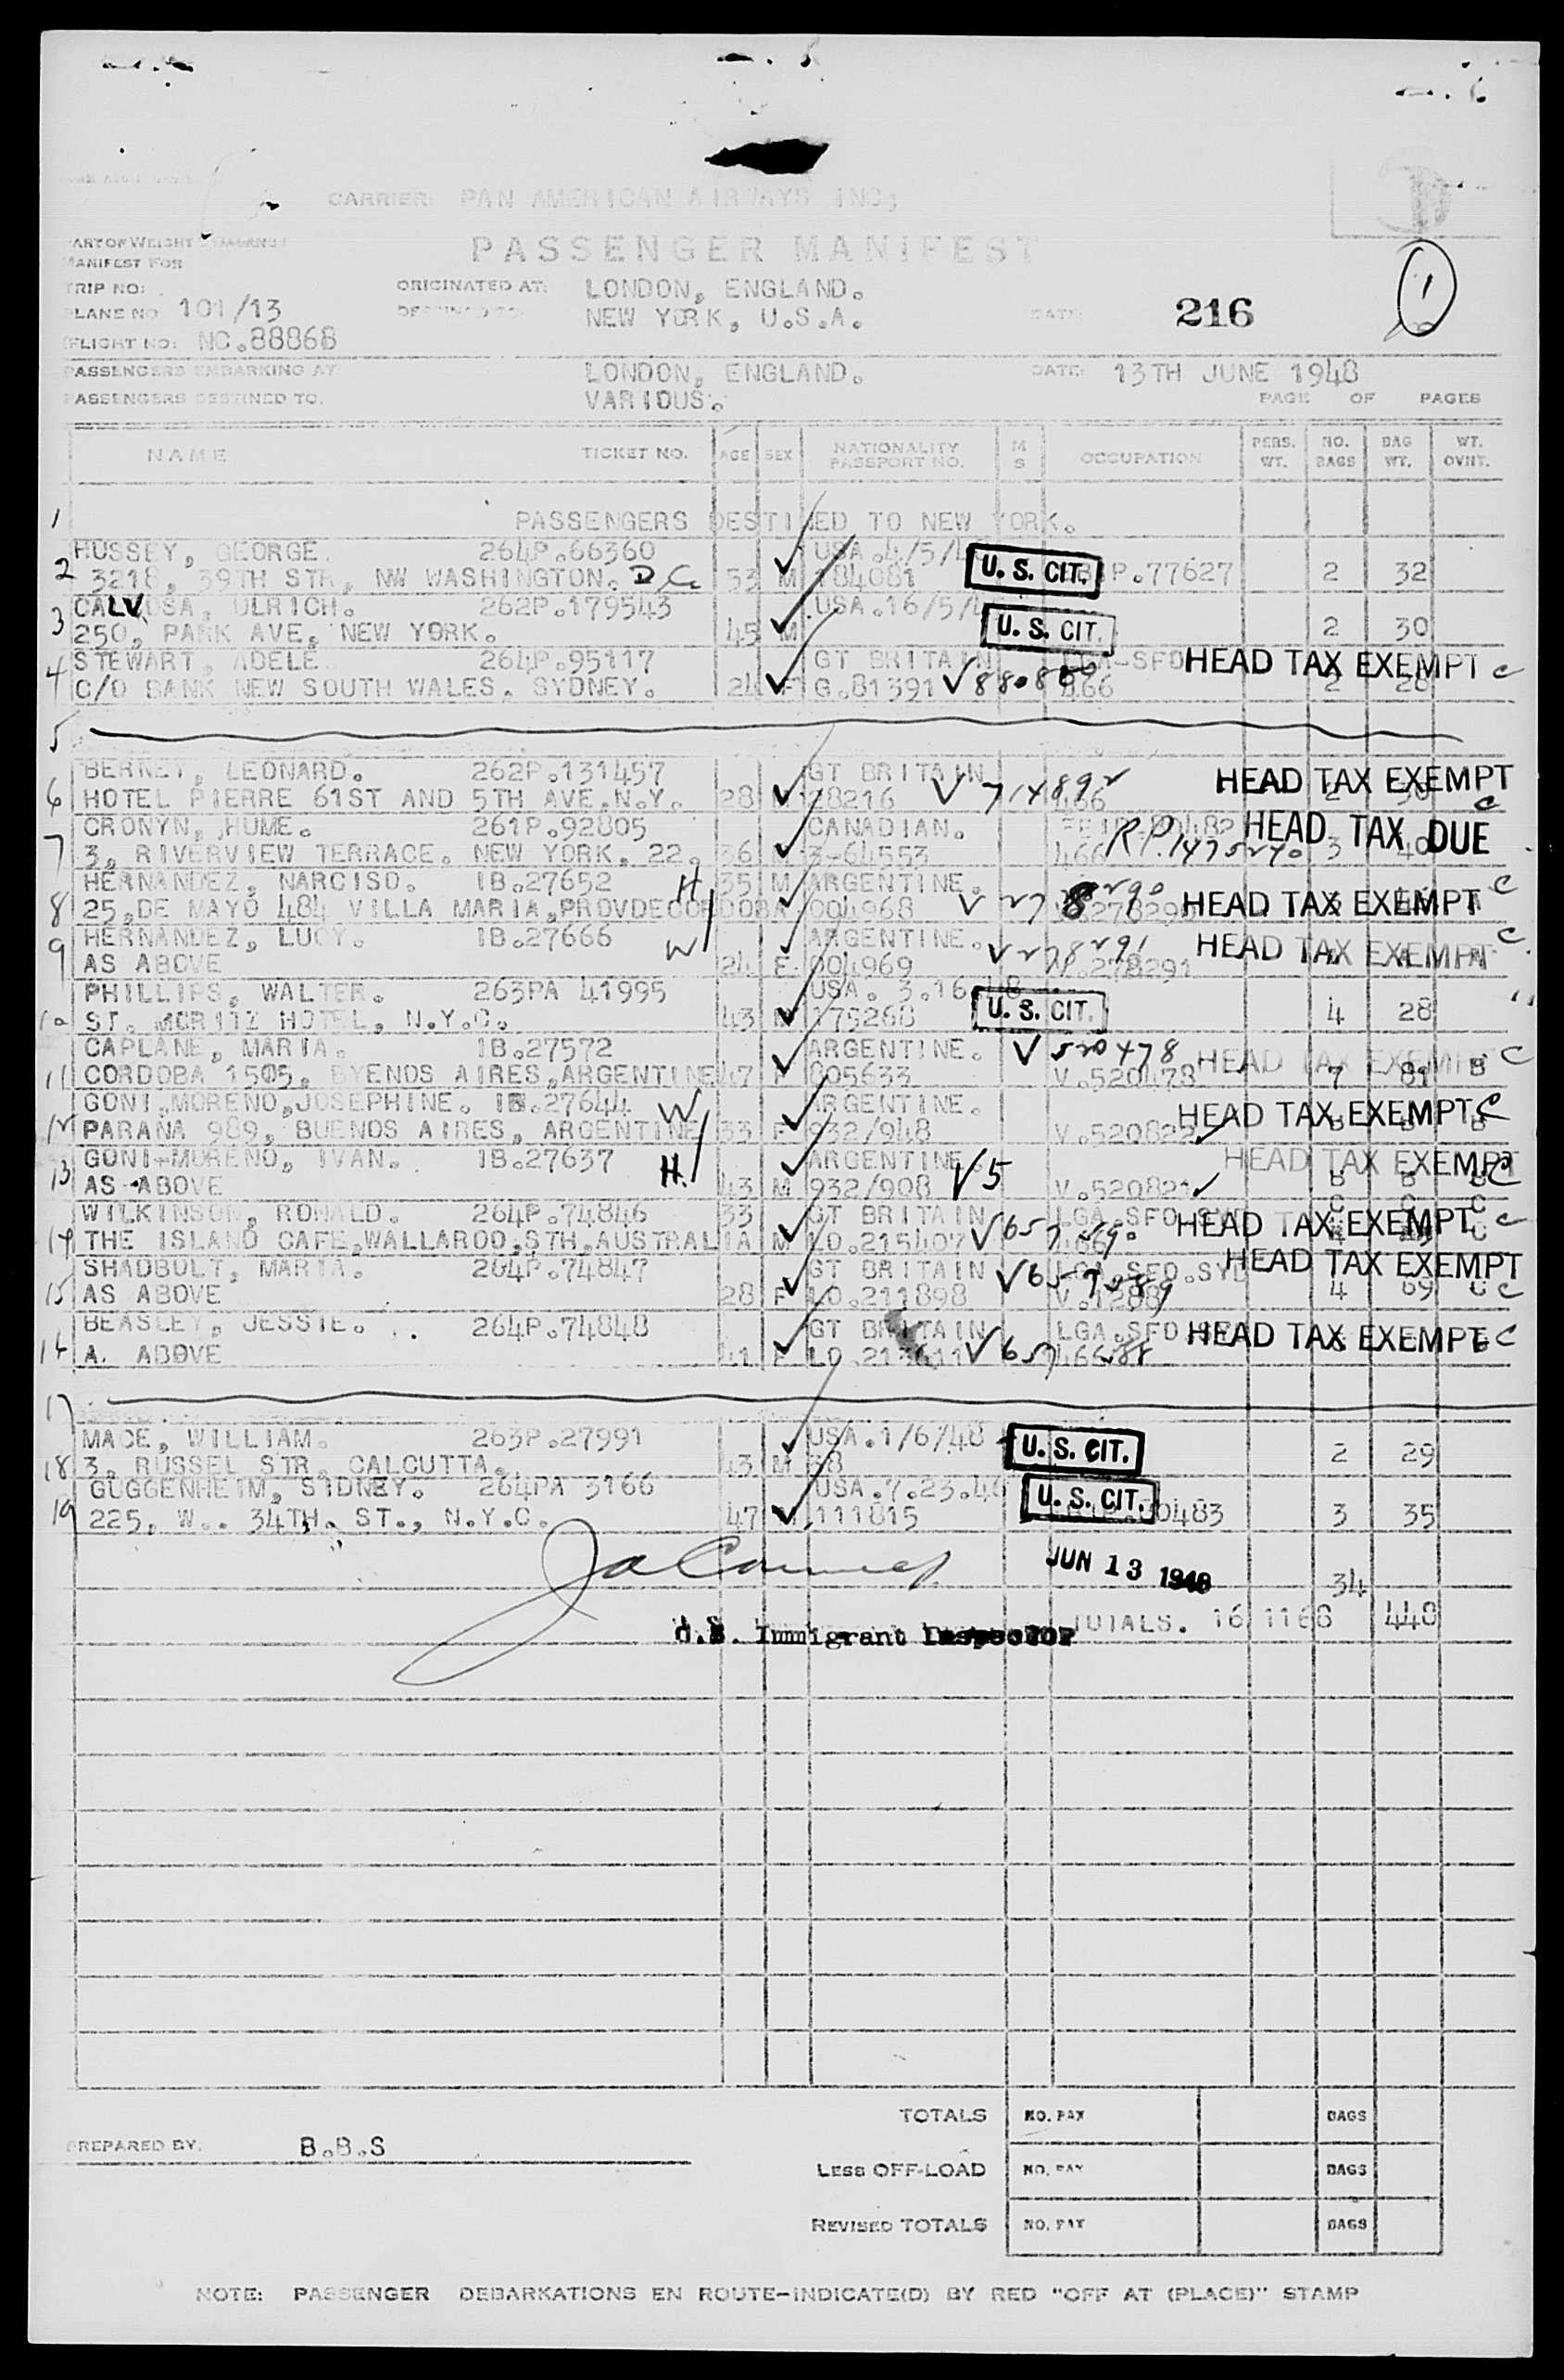 CARRIER: PAN AMERICAN AIRWAYS INC;
PART OF WEIGHT & BALANCE
MANIFEST FOR
PASSENGER MANIFEST
1
TRIP NO:
ORIGINATED AT: LONDON, ENGLAND.
PLANE NO 101/13
NEW YORK, U.S.A.
DATE:
216
FLIGHT NO: NC.88868
PASSENGERS EMBARKING AT
LONDON, ENGLAND.
DATE: 13TH JUNE 1948
PASSENGERS DESTINED TO.
VARIOUS.
PAGE OF PAGES
NAME TICKET NO. AGE SEX NATIONALITY PASSPORT NO. M S OCCUPATION PERS. WT. NO. BAGS BAG WT. WT. OVHT.
1 PASSENGERS DESTINED TO NEW YORK.
HUSSEY, GEORGE. 264P.66360 USA.4/5/
2 3218, 39TH STR, NW WASHINGTON. D.C. 53 M 184081 U. S. CIT. P.77627 2 32
CALV OSA, ULRICH. 262P.179543 USA.16/5/
3 250, PARK AVE, NEW YORK. 45 M U. S. CIT. 2 30
STEWART, ADELE 264P.95117 GT BRITAIN -SFO HEAD TAX EXEMPT C
4 C/O BANK NEW SOUTH WALES. SYDNEY. 24 F G.81391 V 466 2 28
5
BERNEY, LEONARD. 262P.131457 GT BRITAIN HEAD TAX EXEMPT
6 HOTEL PIERRE 61ST AND 5TH AVE.N.Y. 28 28216 V 714892 466 C
CRONYN, HUME. 261P.92805 CANADIAN. HEAD TAX DUE
7 3, RIVERVIEW TERRACE. NEW YORK. 22. 36 M 3-64553 466 R.P. 1475270 3 40
HERNANDEZ, NARCISO. IB.27652 H 35 M ARGENTINE. C
8 25,DE MAYO 484 VILLA MARIA,PROVDECORDOBA 004968 V 278290 HEAD TAX EXEMPT
HERNANDEZ, LUCY. IB.27666 W ARGENTINE. V 278291 HEAD TAX EXEMPT C
9 AS ABOVE 24 F 004969 V.278291
PHILLIPS, WALTER. 263PA 41995 USA. 3.16.48
10 ST. MORITZ HOTEL, N.Y.C. 43 M 175268 U. S. CIT. 4 28
CAPLANE, MARIA. IB.27572 ARGENTINE. V 520478 HEAD TAX EXEMPT C
11 CORDOBA 1505, BYENOS AIRES,ARGENTINE 47 F 005633 V.520478 7 81 B
GONI,MORENO,JOSEPHINE. IB.27644 W ARGENTINE. HEAD TAX EXEMPT C
12 PARANA 989, BUENOS AIRES, ARGENTINE 33 F 932/948 V.520822 B B B
GONI-MORENO, IVAN. IB.27637 H. ARGENTINE. V5 HEAD TAX EXEMPT C
13 AS ABOVE 43 M 932/908 V.520821 B B
WILKINSON, RONALD. 264P.74846 33 GT BRITAIN LGA.SFO.SYD HEAD TAX EXEMPT C
14 THE ISLAND CAFE,WALLAROO,STH,AUSTRALIA M LO.215407 V 657590 466
SHADBOLT, MARIA. 264P.74847 GT BRITAIN LGA.SFO.SYD HEAD TAX EXEMPT
15 AS ABOVE 28 F LO.211898 V 657589 4 69 C C
BEASLEY, JESSIE. 264P.74848 GT BRITAIN LGA.SFO HEAD TAX EXEMPT C
16 A. ABOVE 41 F V 466
17
MACE, WILLIAM. 263P.27991 USA.1/6/48
18 3, RUSSEL STR, CALCUTTA. 43 M 38 U. S. CIT. 2 29
GUGGENHEIM, SIDNEY. 264PA 3166 USA.7.23.46
19 225, W.. 34TH. ST., N.Y.C. 47 M 111815 U. S. CIT. 0483 3 35
JUN 13 1948
34
U.S. Immigrant Inspector
TOTALS. 16 1168 448
TOTALS NO. PAX BAGS
PREPARED BY. B.B.S
LESS OFF-LOAD NO. PAX BAGS
REVISED TOTALS NO. PAX BAGS
NOTE: PASSENGER DEBARKATIONS EN ROUTE-INDICATE(D) BY RED "OFF AT (PLACE)" STAMP